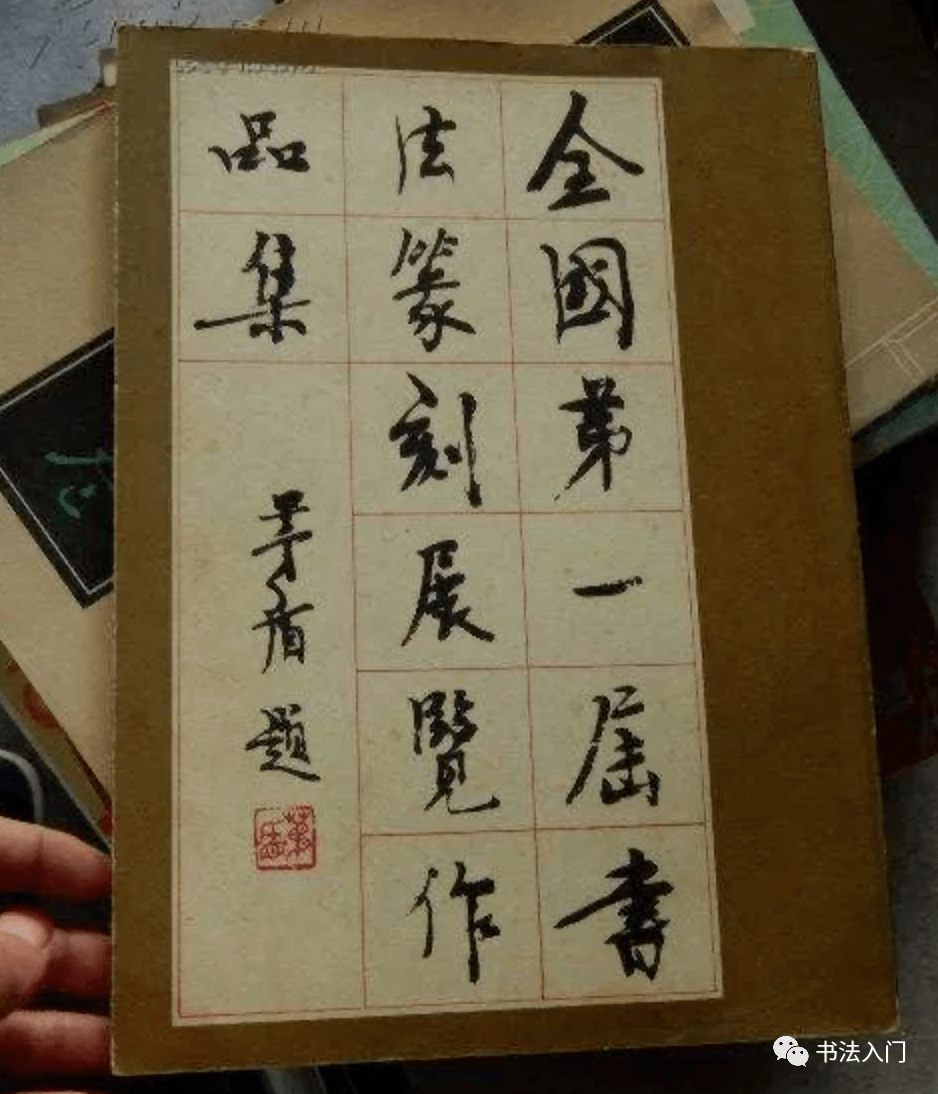 全國第一屆書
法篆刻展覽作
品集
茅盾题
书法入门